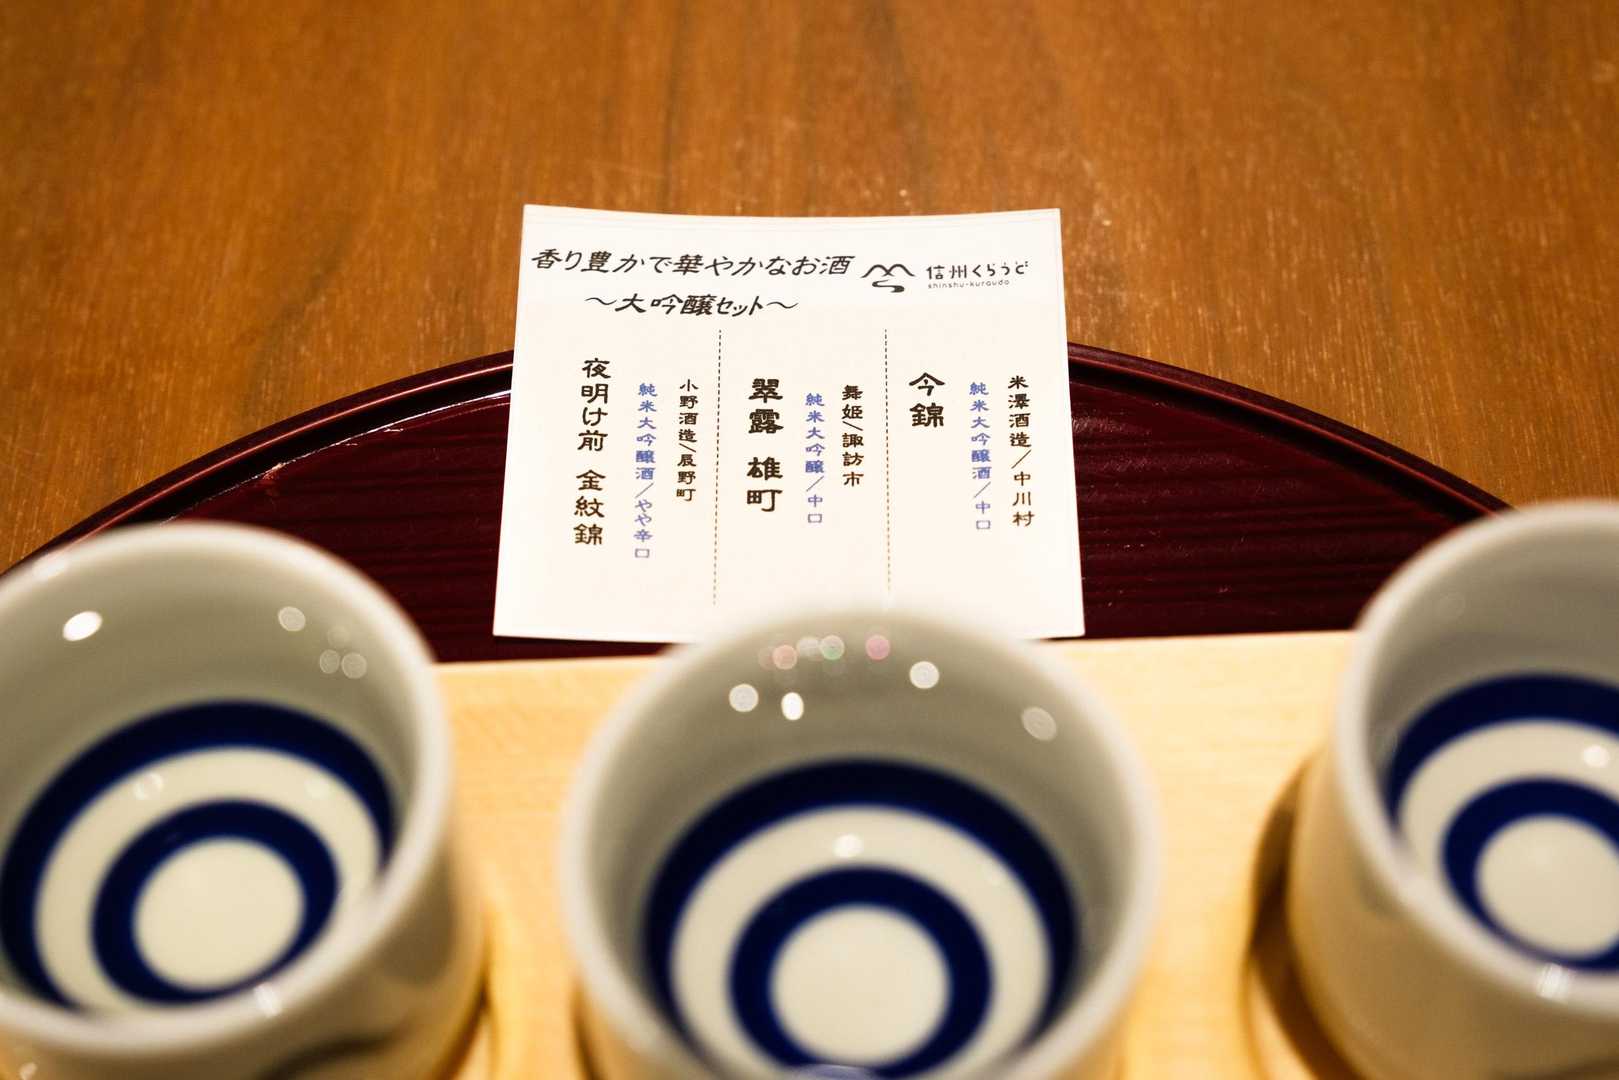 香り豊かで華やかなお酒
〜大吟醸セット〜
信州くらうど
shinshu-kuraudo
米澤酒造/中川村
純米大吟醸酒/中口
今錦
舞姫/諏訪市
純米大吟醸/中口
翠露 雄町
小野酒造/辰野町
純米大吟醸酒/やや辛口
夜明け前 金紋錦